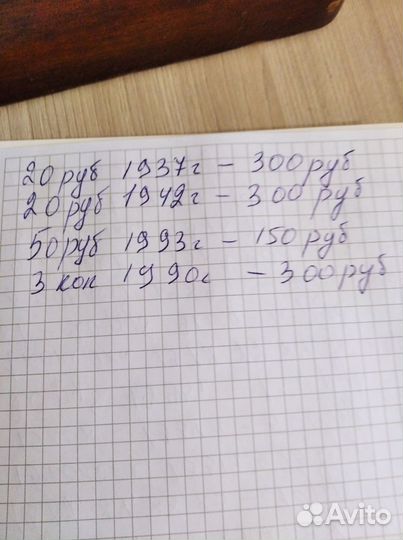 20 руб 1937г – 300 руб
20 руб 1942г – 300 руб
50 руб 1993г – 150 руб
3 коп 1990г – 300 руб
Avito